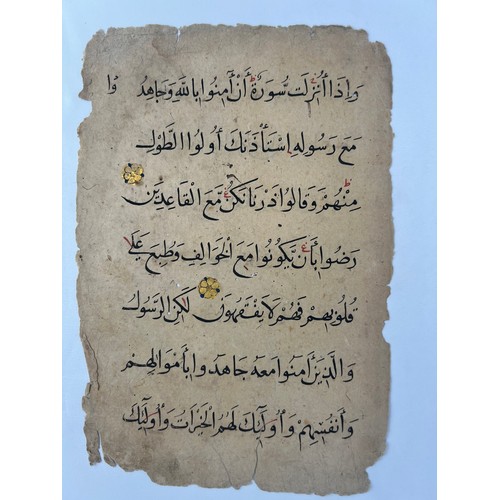 وَإِذَا أُنْزِلَتْ سُورَةٌ أَنْ آمِنُوا بِاللَّهِ وَجَاهِدُ وا
مَعَ رَسُولِهِ اسْتَأْذَنَكَ أُولُوا الطَّوْلِ
مِنْهُمْ وَقَالُوا ذَرْنَا نَكُنْ مَعَ الْقَاعِدِينَ
رَضُوا بِأَنْ يَكُونُوا مَعَ الْخَوَالِفِ وَطُبِعَ عَلَى
قُلُوبِهِمْ فَهُمْ لَا يَفْقَهُونَ لَكِنِ الرَّسُولُ
وَالَّذِينَ آمَنُوا مَعَهُ جَاهَدُوا بِأَمْوَالِهِمْ
وَأَنْفُسِهِمْ وَأُولَئِكَ لَهُمُ الْخَيْرَاتُ وَأُولَئِكَ